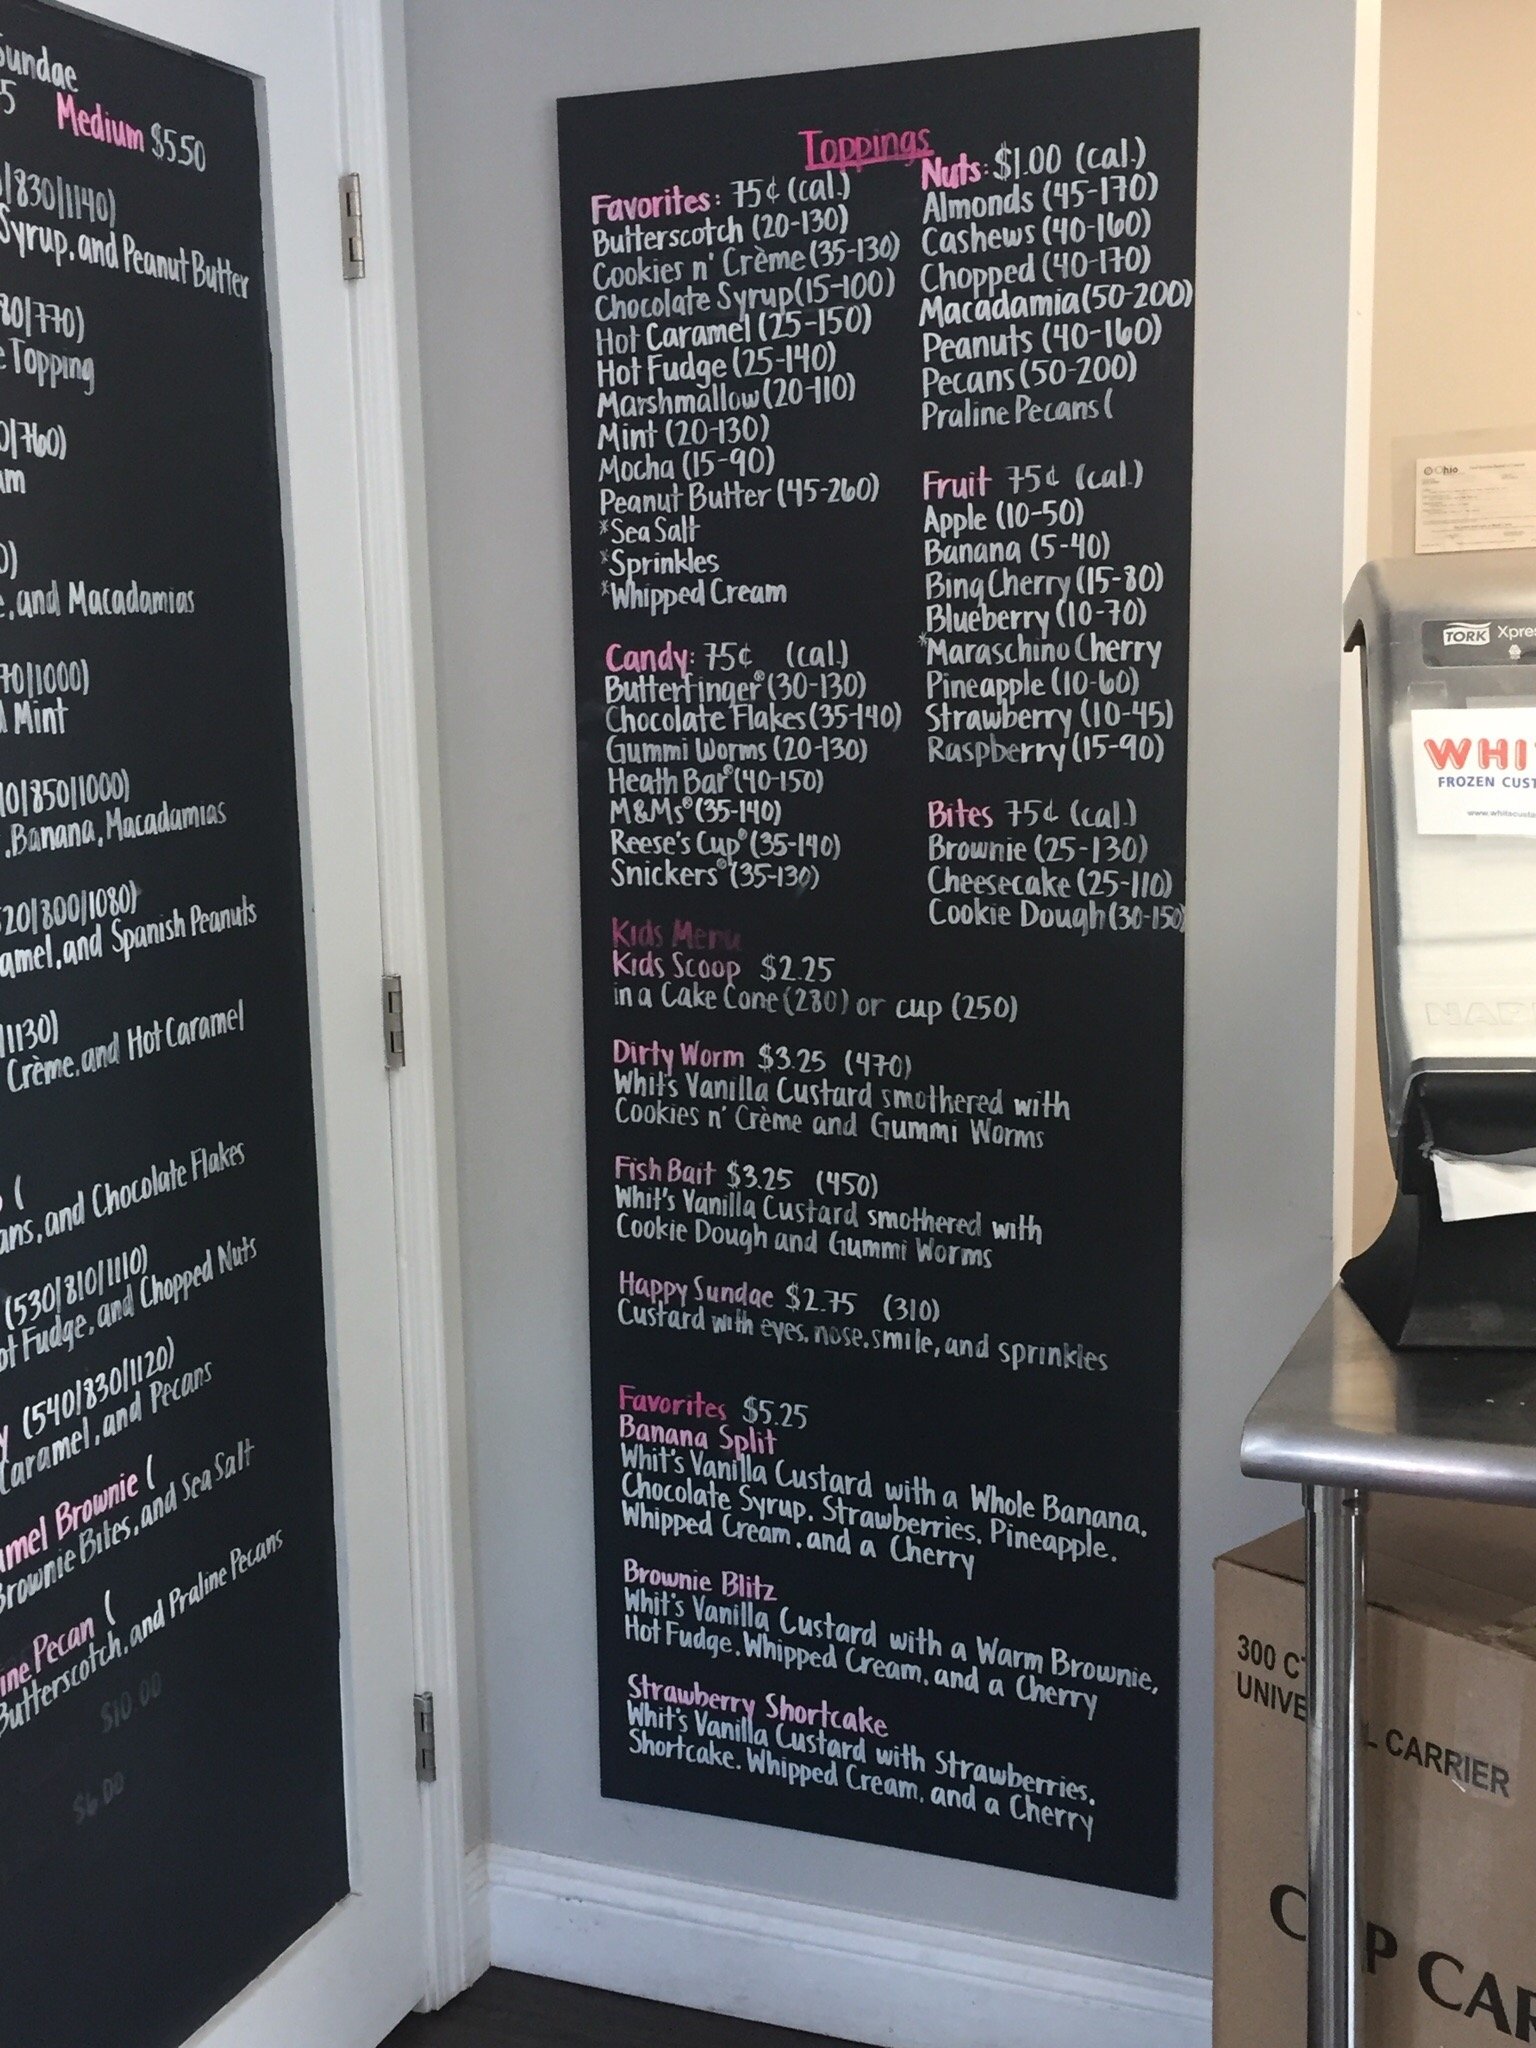 Sundae
5 Medium $5.50
/830/1140)
Syrup, and Peanut Butter
80/770)
Topping
0/760)
am
0)
e, and Macadamias
70/1000)
d Mint
10/850/1000)
, Banana, Macadamias
520/800/1080)
amel, and Spanish Peanuts
/1130)
Crème, and Hot Caramel
(
ans, and Chocolate Flakes
(530/810/1110)
ot Fudge, and Chopped Nuts
y (540/830/1120)
Caramel, and Pecans
amel Brownie (
Brownie Bites, and Sea Salt
ine Pecan (
Butterscotch, and Praline Pecans
$10.00
$6.00
Toppings
Favorites: 75¢ (cal.)
Butterscotch (20-130)
Cookies n' Crème (35-130)
Chocolate Syrup (15-100)
Hot Caramel (25-150)
Hot Fudge (25-140)
Marshmallow (20-110)
Mint (20-130)
Mocha (15-90)
Peanut Butter (45-260)
*Sea Salt
*Sprinkles
*Whipped Cream
Candy: 75¢ (cal.)
Butterfinger® (30-130)
Chocolate Flakes (35-140)
Gummi Worms (20-130)
Heath Bar® (40-150)
M&Ms® (35-140)
Reese's Cup® (35-140)
Snickers® (35-130)
Nuts: $1.00 (cal.)
Almonds (45-170)
Cashews (40-160)
Chopped (40-170)
Macadamia (50-200)
Peanuts (40-160)
Pecans (50-200)
Praline Pecans (
Fruit 75¢ (cal.)
Apple (10-50)
Banana (5-40)
Bing Cherry (15-80)
Blueberry (10-70)
*Maraschino Cherry
Pineapple (10-60)
Strawberry (10-45)
Raspberry (15-90)
Bites 75¢ (cal.)
Brownie (25-130)
Cheesecake (25-110)
Cookie Dough (30-150)
Kids Menu
Kids Scoop $2.25
in a Cake Cone (280) or cup (250)
Dirty Worm $3.25 (470)
Whits Vanilla Custard smothered with
Cookies n' Crème and Gummi Worms
Fish Bait $3.25 (450)
Whit's Vanilla Custard smothered with
Cookie Dough and Gummi Worms
Happy Sundae $2.75 (310)
Custard with eyes, nose, smile, and sprinkles
Favorites $5.25
Banana Split
Whit's Vanilla Custard with a Whole Banana,
Chocolate Syrup, Strawberries, Pineapple,
Whipped Cream, and a Cherry
Brownie Blitz
Whit's Vanilla Custard with a Warm Brownie,
Hot Fudge, Whipped Cream, and a Cherry
Strawberry Shortcake
Whit's Vanilla Custard with Strawberries,
Shortcake, Whipped Cream, and a Cherry
Ohio
TORK Xpre
WHI
FROZEN CUST
www.whitscusta
NAP
300 C
UNIVE L CARRIER
C P CAR